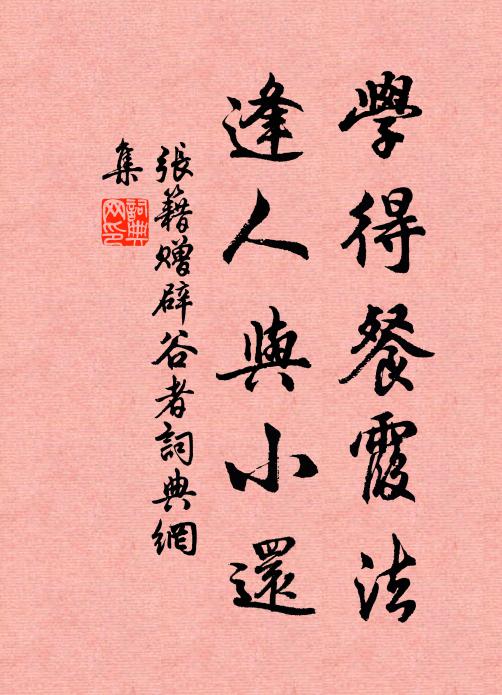 學得餐霞法
逢人與小還
張籍贈辟谷者詞典網
集
詞典
网印